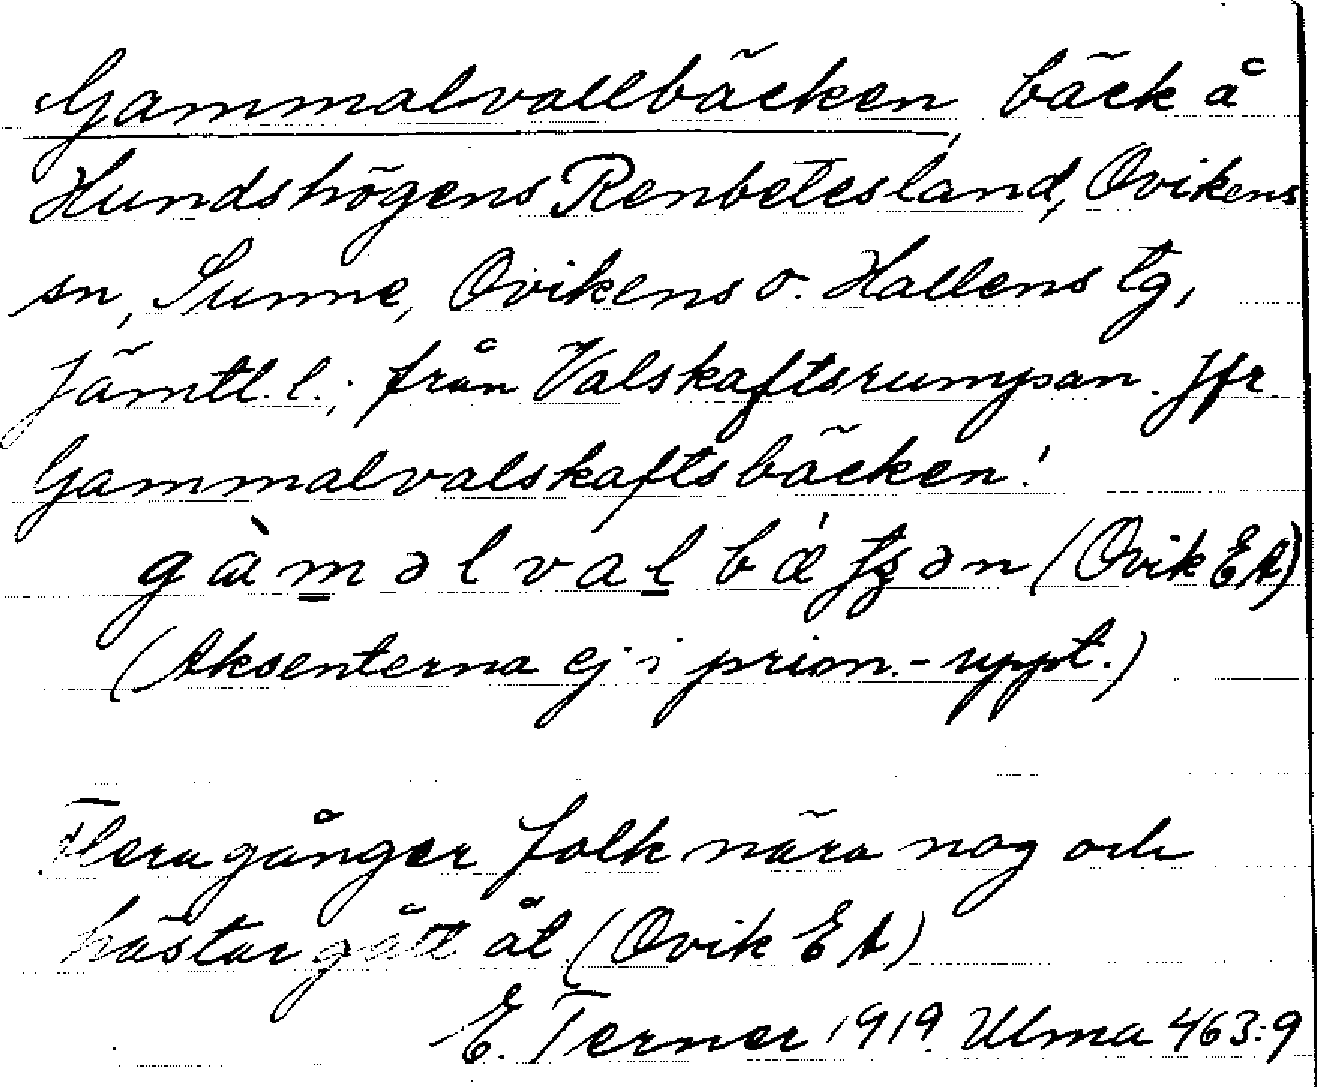 Gammalvallbäcken, bäck å
Hundshögens Renbetesland, Ovikens
sn, Sunne, Ovikens o. Hallens tg,
Jämtl. l.; från Valskaftsrumpan. Jfr
Gammalvalskaftsbäcken!
gàm̲əlval̲ bǽʈʂən (Ovik EA)
(Aksenterna ej i prim.-uppt.)
Flera gånger folk nära nog och
hästar gått åt (Ovik EA)
E. Terner 1919. Ulma 463:9